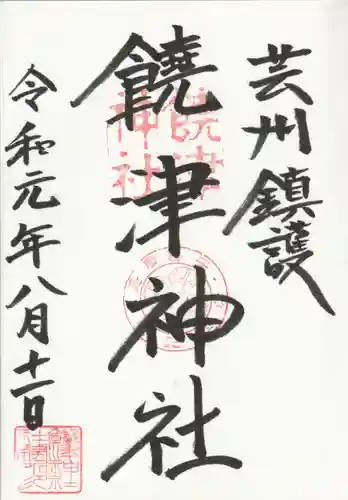 芸州鎮護
饒津神社
令和元年八月十一日
饒津神社